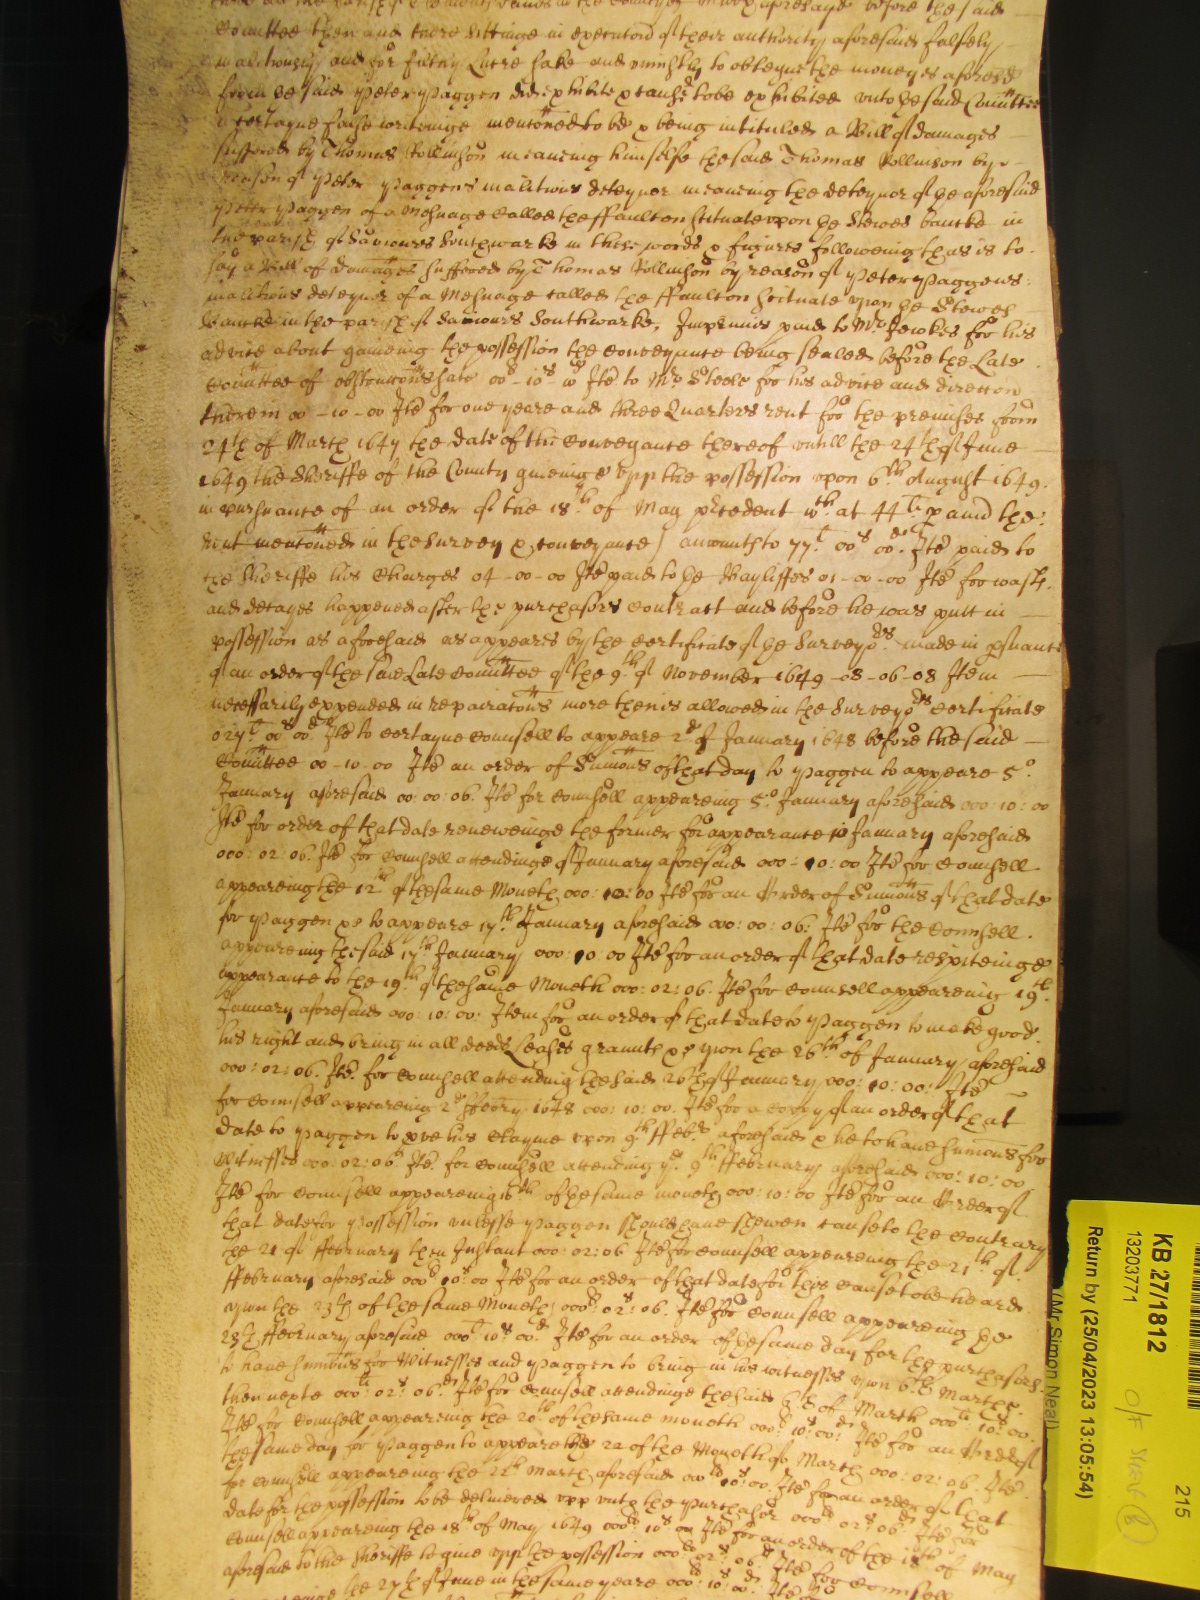 Comittee then and there sittinge in execucon of their authority aforesaid falsely
malitiously and for filthy Lucre sake and unjustly to obteyne the moneyes aforesd
from he said Peter Paggen did exhibite & caused to be exhibited unto he said Comittee
a certayne false writeinge mentoned to be & being intituled a Bill of damages
suffered by Thomas Rollinson meaneing himselfe the said Thomas Rollinson by
reason of Peter Paggens malitious deteynor meaneing the deteynor of he aforesaid
Peter Paggen of a Messuage called the ffaulcon scituate upon he Stewes bancke in
the parish of Saviours Southwarke in these words & figures followeing that is to
say a Bill of damages suffered by Thomas Rollinson by reason of Peter Paggens
malitious deteynor of a Messuage called the ffaulcon scituate upon he Stewes
Bancke in the parish of Saviours Southwarke, Imprimis paid to Mr. for his
advice about gaineing the possession the conveyance being sealed before the Late
Comittee of obstruccons sate 00s - 10s - 00 Ite to Mr. Steele for his advice and direccon
therein 00 - 10 - 00 Ite for one yeare and three Quarters rent for the premises from
24th of March 1647 the date of the Conveyance thereof untill the 24th of June
1649 the Sheriffe of the County giveing upp the possession upon 6th August 1649
in pursuance of an order of the 18th of May precedent wch at 44 l p ann the
rent mentoned in the Survey & conveyance) amounth to 77 l 00s 00d. Ite paid to
the Sheriffe his Charges 04 - 00 - 00 Ite paid to he Bayliffes 01 - 00 - 00 Ite for wast
and decayes happened after the purchasors contract and before he was putt in
possession as aforesaid as appeares by the certificate of he Surveyors made in psuance
of an order of the said Late Comittee of the 9th of November 1649 - 08 - 06 - 08 Item
necessarily expended in repairatons more then is allowed in the Surveyors Certificate
027l 00s 00d Ite to certayne counsell to appeare 2d of January 1648 before the said
Comittee 00 - 10 - 00 Ite an order of Sumons of that day to Paggen to appeare 5o
January aforesaid 00: 00: 06. Ite for counsell appeareing 5o January aforesaid 000: 10: 00
Ite for order of that date reneweinge the former for appearance 10 January aforesaid
000: 02: 06. Ite for counsell attendinge of January aforesaid 000: 10: 00 Ite for counsell
appeareing the 12th of the same Moneth 000: 10: 00 Ite for an Order of Sumons of that date
for Paggen &c to appeare 17th January aforesaid 000: 00: 06: Ite for the counsell
appeareing the said 17th January 000: 10: 00 Ite for an order of that date respiteinge
appearance to the 19th of the same Moneth 000: 02: 06. Ite for counsell appeareing 19th
January aforesaid 000: 10: 00: Item for an order of that date to Paggen to make good
his right and bring in all deeds Leases graunts &c upon the 26th of January aforesaid
000: 02: 06. Ite. for counsell attending the said 26th of January 000: 10: 00: Ite
for counsell appeareing 2d ffebry 1648 000: 10: 00. Ite for a coppy of an order of that
date to Paggen to his Clayme upon 9th ffebr aforesaid & he to have sumons for
witnesses 000: 02: 06 Ite. for counsell attending ye 9th ffebruary aforesaid 000: 10: 00
Ite for counsell appeareing 16th of he same moneth 000: 10: 00 Ite for an Order of
that date for possession unlesse Paggen should have shewen cause to the contrary
the 21 of ffebruary then Instant 000: 02: 06 Ite for counsell appeareing the 21th of
ffebruary aforesaid 000l 10s: 00 Ite for an order of that date for this cause to be heard
upon the 23th of the same Moneth 000: 02s: 06. Ite for counsell appeareing he
23th ffebruary aforesaid 000l 10s 00d Ite for an order of he same day for the purchasors
to have sumons for Witnesses and Paggen to bring in his witnesses upon 6th March
then nexte 000l: 02s: 06d Ite for counsell attendinge the said 6th of March 000l: 10s: 00:
Ite for counsell appeareing the 20th of the same moneth 000: 10s: 00: Ite for an Order of
the same day for Paggen to appeare the 22 of the Moneth of March 000: 02: 06. Ite
for counsell appeareing the 22th March aforesaid 000 10s: 00. Ite for an order of that
date for the possession to be delivered upp unto the purchasor 000 02s 06 Ite for
counsell appeareing the 18th of May 1649 000 10s 00 Ite for an order of the 18th of May
aforesaid to the Sheriffe to give upp the possession 000 02s: 06 Ite for counsell
the 27th of June in the same yeare 000: 10: 00: Ite for
KB 27/1812
13203771
215
Return by (25/04/2023 13:05:54)
(Mr Simon Neal)